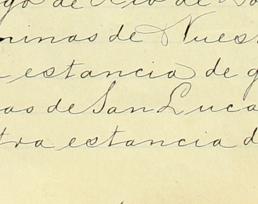 go de Rio de
minas de Nuest
estancia de g
as de San Luca
tra estancia d